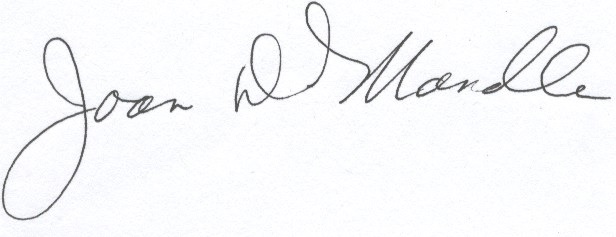 Joan D Mandle